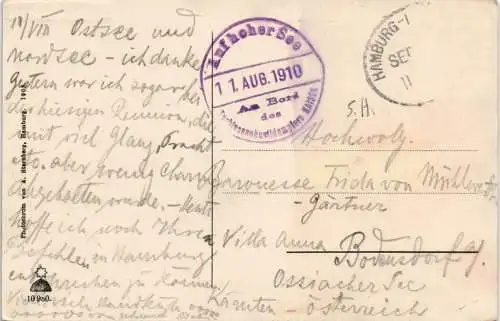 11/VIII Ostsee und
Nordsee – ich danke
Gestern war ich sogar bei
der hiesigen Reunion, die
mit viel Glanz, Pracht
etc. aber wenig
abgehalten wurde. – Heute
hoffe ich noch Ihren
Befehlen in Hamburg
zu können
Auf hoher See
11. AUG. 1910
An Bord
des
KAISER
HAMBURG-1
11
S.H.
Hochwolg.
Baronesse Frida von
Gärtner
Villa Anna
Bodensdorf a/
Ossiacher See
Kärnten – Österreich
Photochrom von A. Sternberg, Hamburg.
10980.